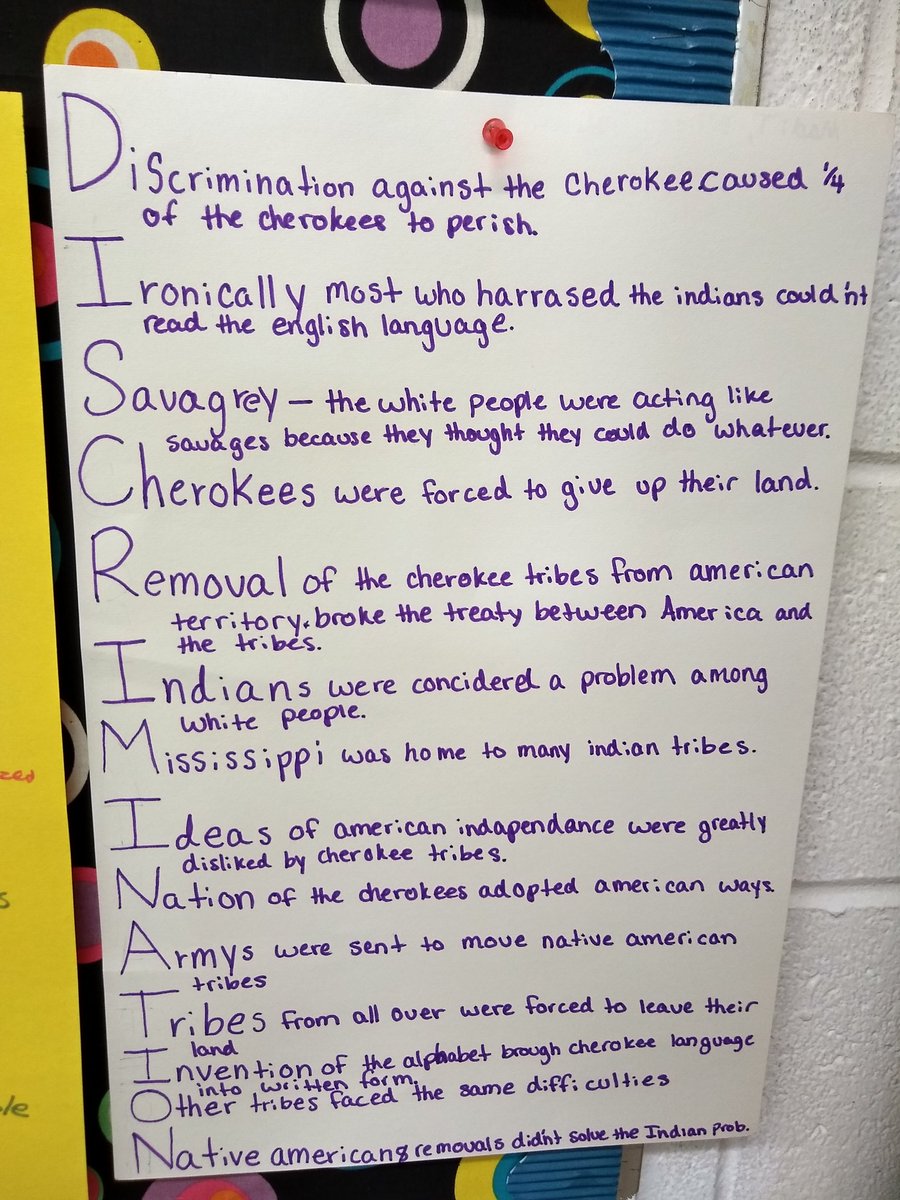 Discrimination against the Cherokee caused 1/4
of the cherokees to perish.
Ironically most who harrased the indians could'nt
read the english language.
Savagrey — the white people were acting like
savages because they thought they could do whatever.
Cherokees were forced to give up their land.
Removal of the cherokee tribes from american
territory. broke the treaty between America and
the tribes.
Indians were concidered a problem among
white people.
Mississippi was home to many indian tribes.
Ideas of american indapendance were greatly
disliked by cherokee tribes.
Nation of the cherokees adopted american ways.
Armys were sent to move native american
tribes
Tribes from all over were forced to leave their
land
Invention of the alphabet brough cherokee language
into written form.
Other tribes faced the same difficulties
Native americans removals didn't solve the Indian prob.